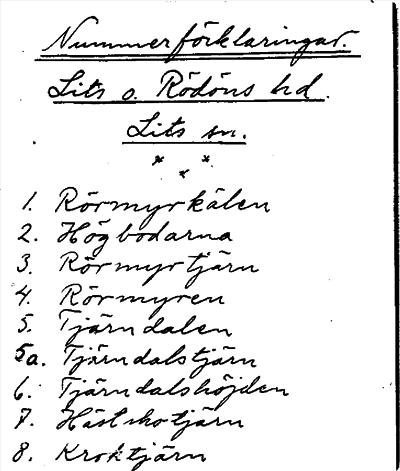 Nummerförklaringar.
Lits o. Rödöns hd.
Lits sn.
1. Rörmyrkälen
2. Högbodarna
3. Rörmyrtjärn
4. Rörmyren
5. Tjärndalen
5a. Tjärndalstjärn
6. Tjärndalshöjden
7. Hästskotjärn
8. Kroktjärn